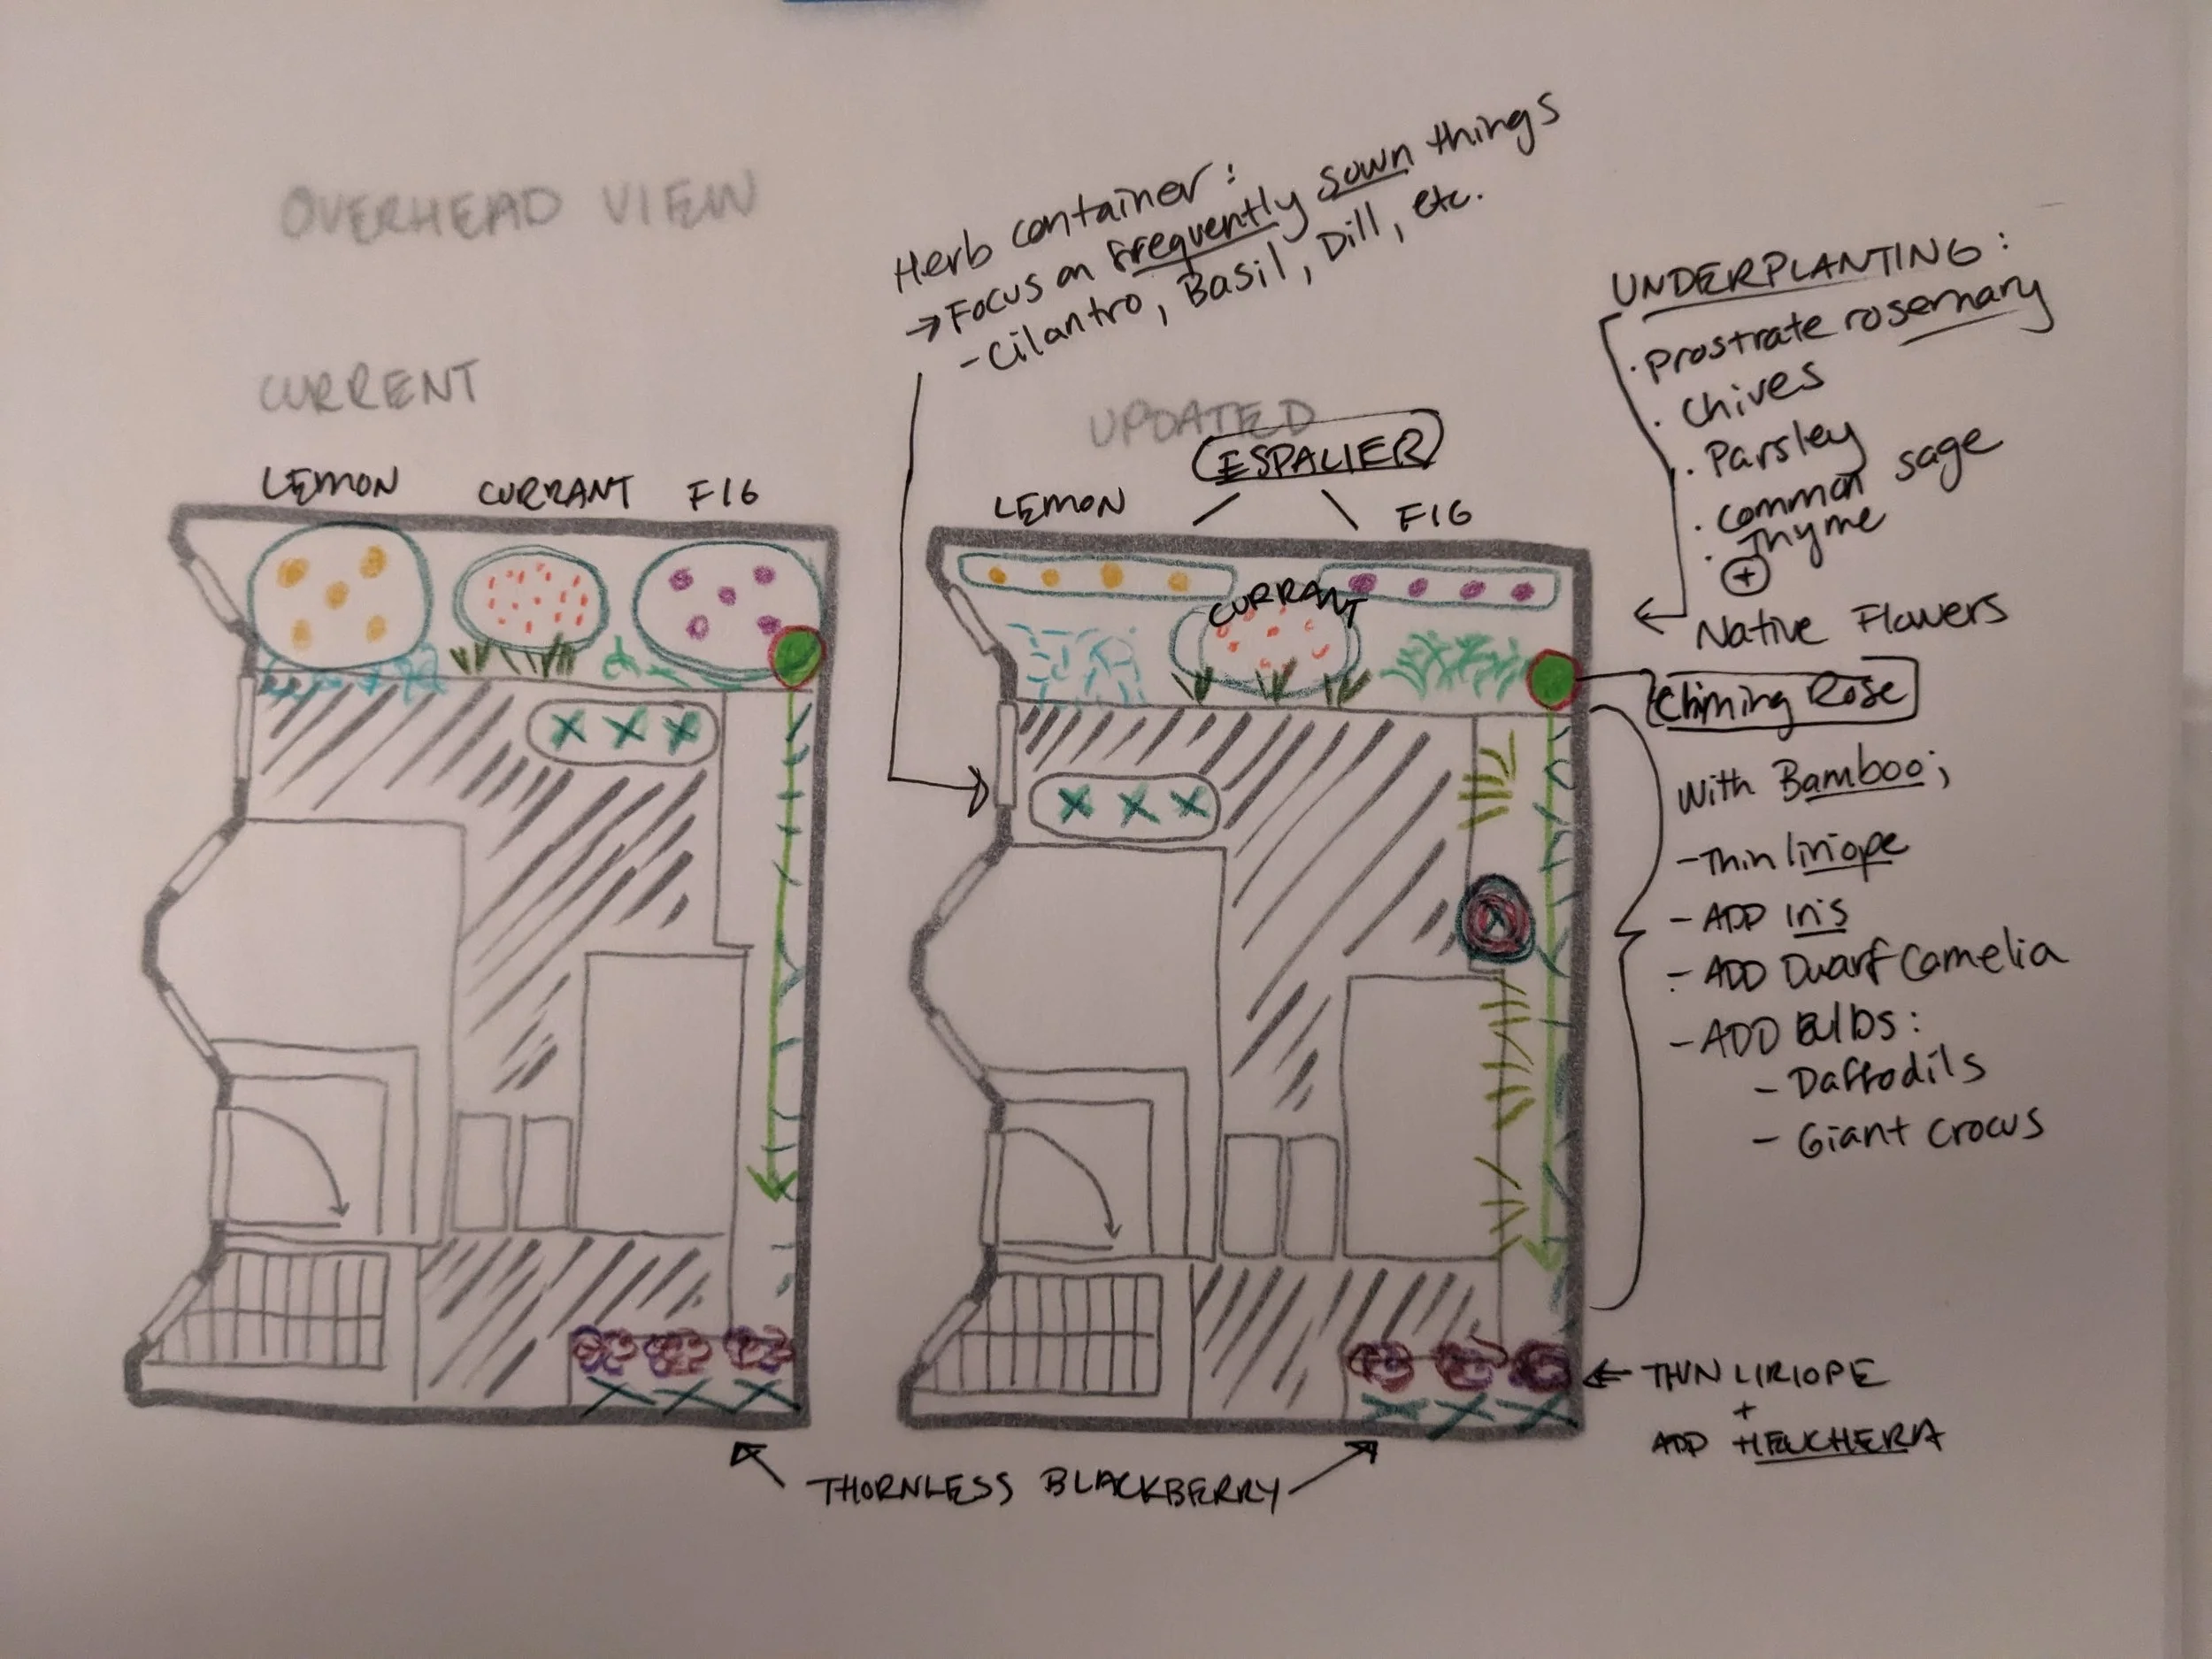 OVERHEAD VIEW
CURRENT
LEMON CURRANT FIG
Herb container:
→ Focus on frequently sown things
- Cilantro, Basil, Dill, etc.
UPDATED
ESPALIER
LEMON
FIG
CURRANT
UNDERPLANTING:
· Prostrate rosemary
· Chives
· Parsley
· Common sage
· Thyme
+
Native Flowers
Climing Rose
With Bamboo;
- Thin liriope
- ADD Iris
- ADD Dwarf Camelia
- ADD Bulbs:
- Daffodils
- Giant Crocus
← THIN LIRIOPE
+
ADD HEUCHERA
THORNLESS BLACKBERRY